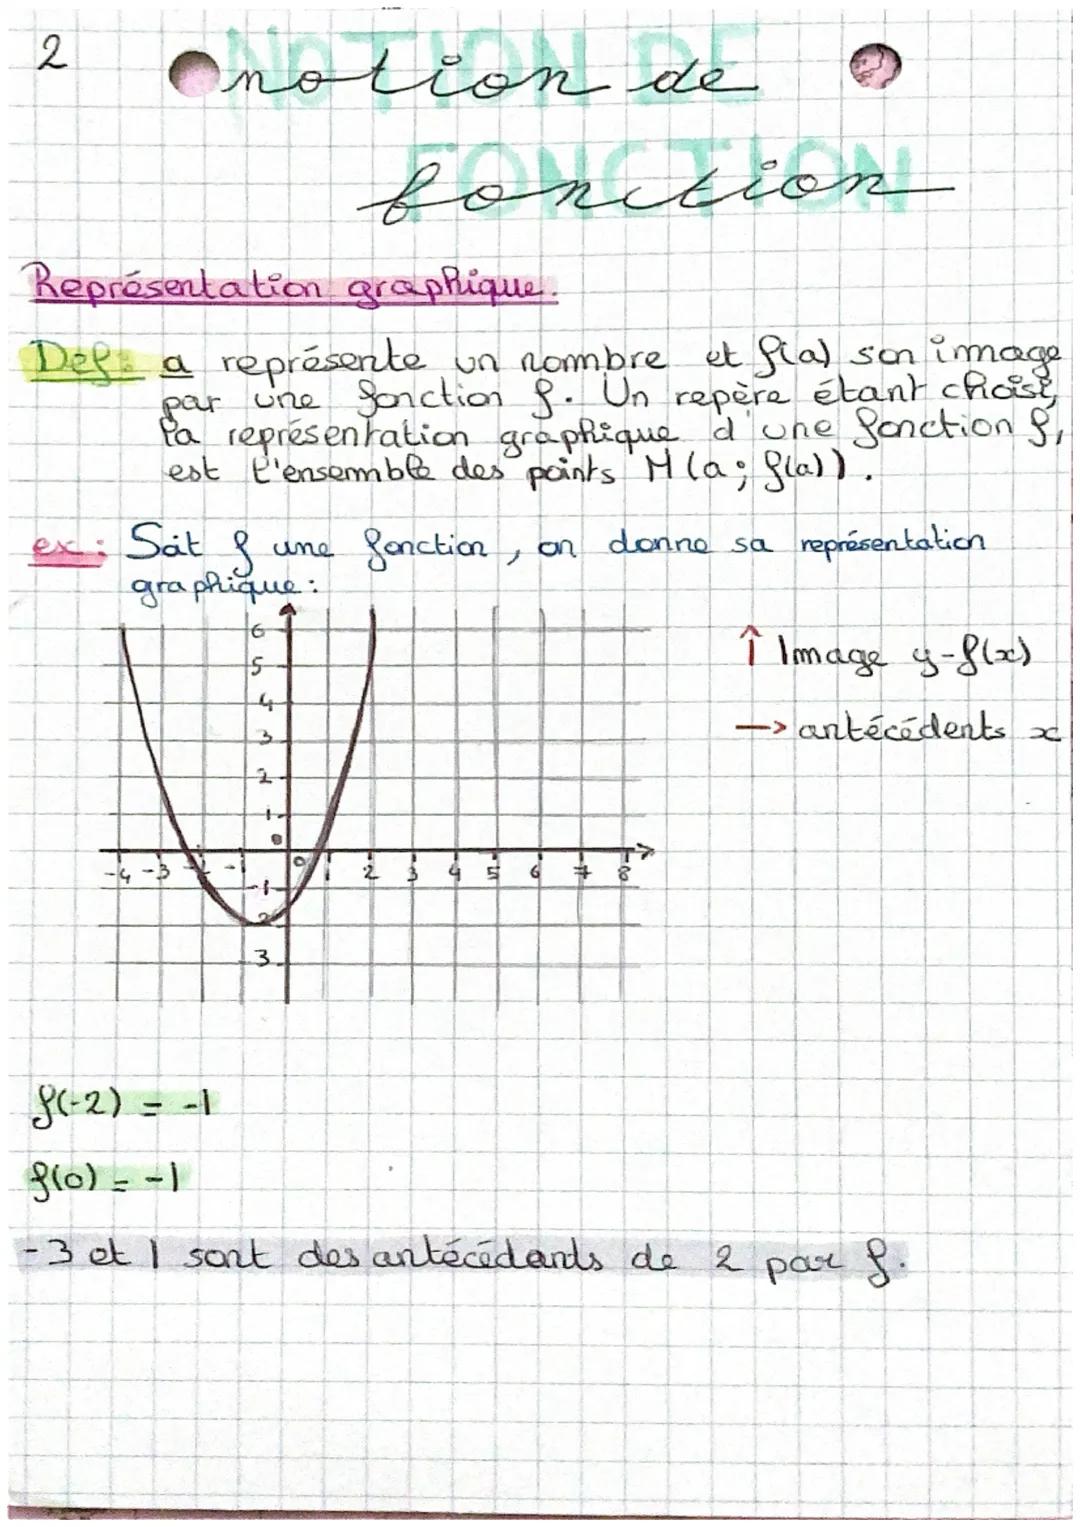 2
NOTION DE
notion de
FONCTION
fonction
Représentation graphique.
Def: a représente un nombre et f(a) son image
par une fonction f. Un repère étant choisi,
la représentation graphique d'une fonction f,
est l'ensemble des points M(a; f(a)).
ex: Soit f une fonction, on donne sa représentation
graphique:
6
5
4
3
2
1
0
-4 -3 -2 -1 0 1 2 3 4 5 6 7 8
-1
2
3
↑ Image y-f(x)
-> antécédents x
f(-2) = -1
f(0) = -1
-3 et 1 sont des antécédants de 2 par f.